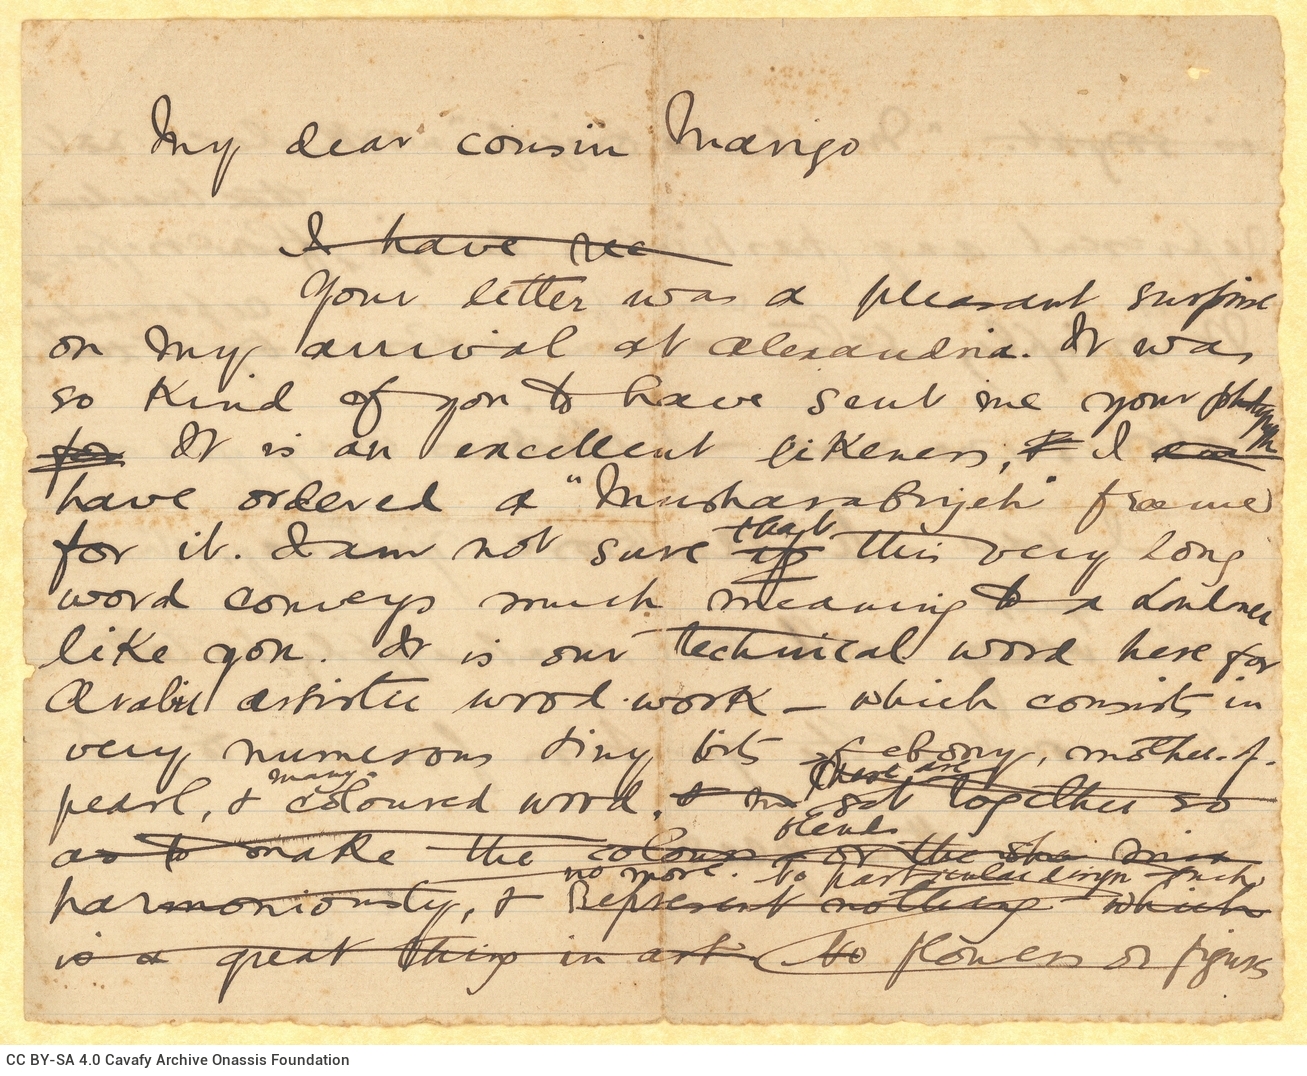 My dear cousin Marigo
I have rec
Your letter was a pleasant surprise
on my arrival at Alexandria. It was
so kind of you to have sent me your photograph
for It is an excellent likeness, & I am
have ordered a "Musharabiyeh" frame
for it. I am not sure if that this very long
word conveys much meaning to a Londoner
like you. It is our technical word here for
Arabic artistic wood-work – which consists in
very numerous tiny bits of ebony, mother-of-
pearl, & many-coloured wood, & There are set together so
as to make the colours blends or the
harmoniously, & no more. Represent nothing to particular design such which
is a great thing in art No flowers or figures
CC BY-SA 4.0 Cavafy Archive Onassis Foundation